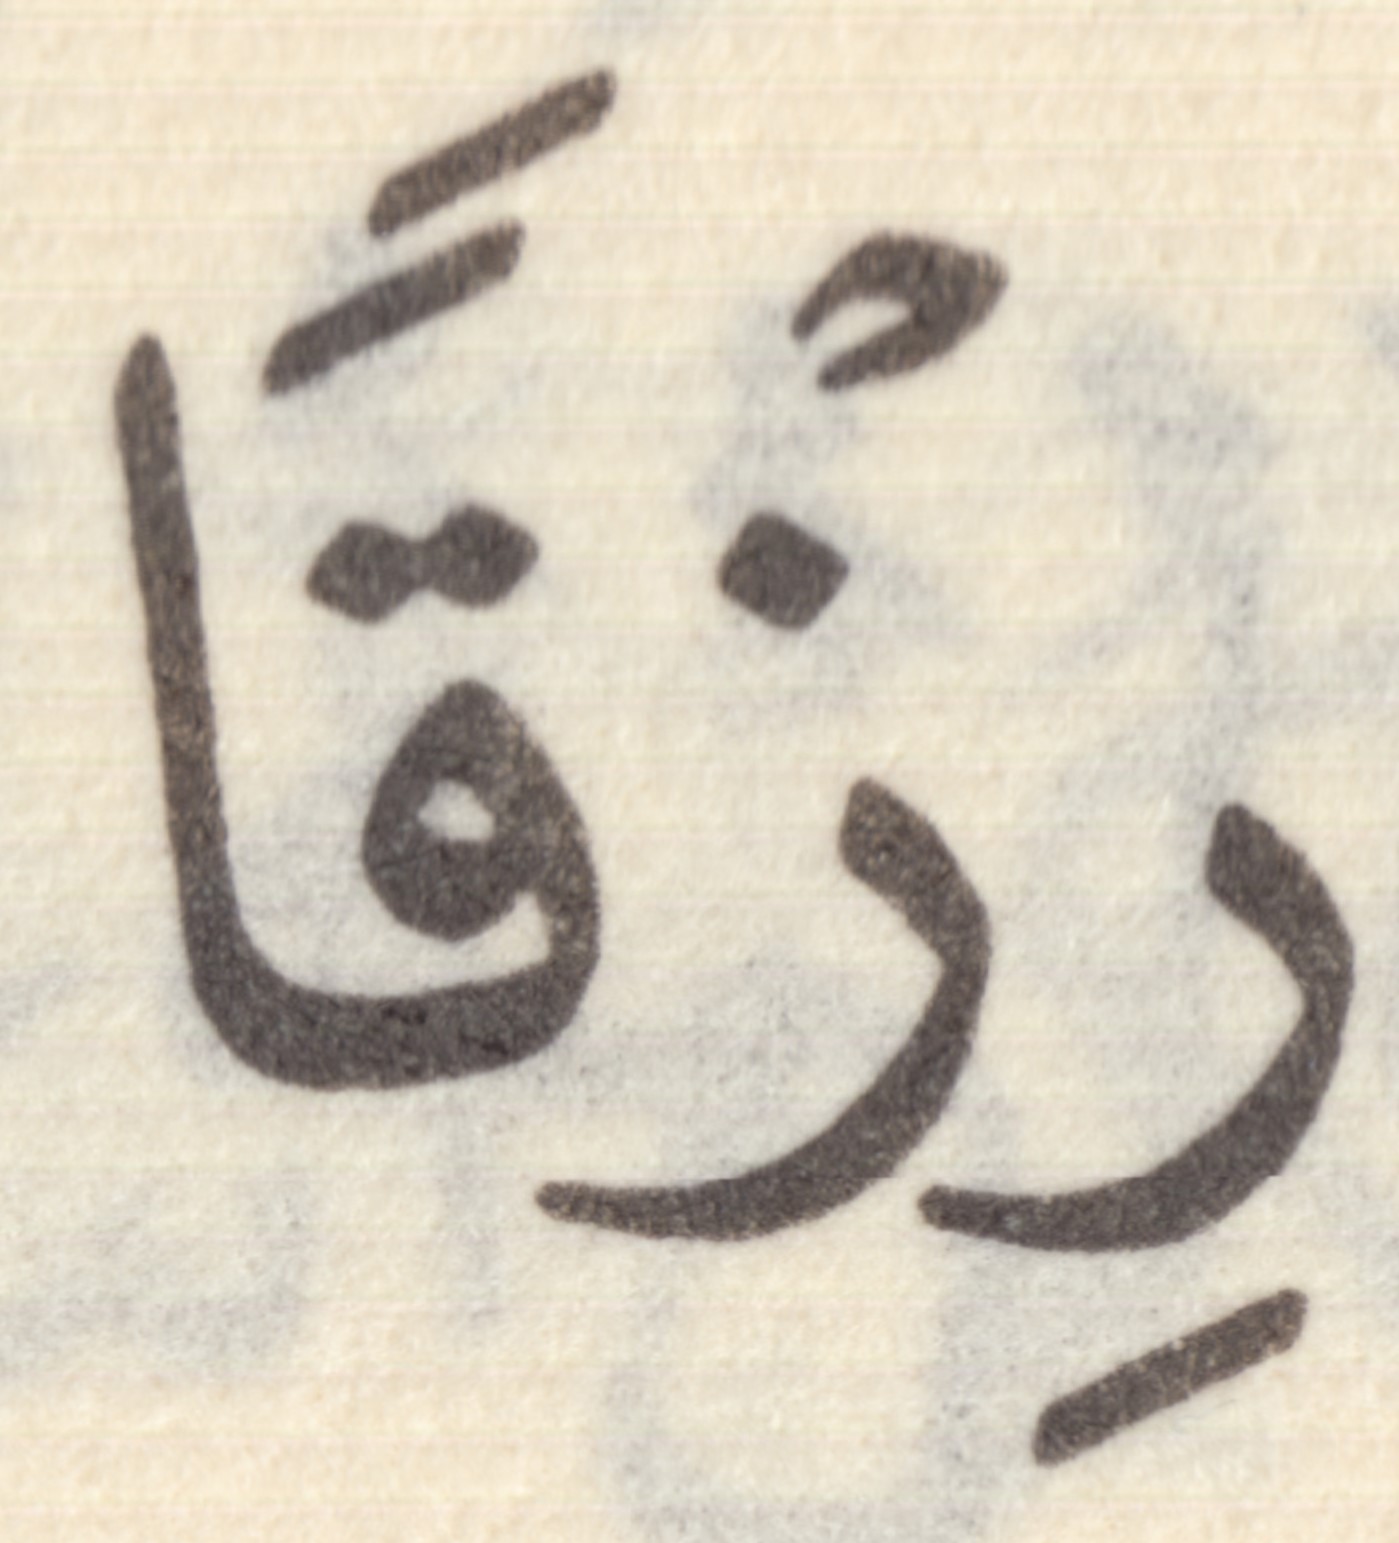 رِزْقًا